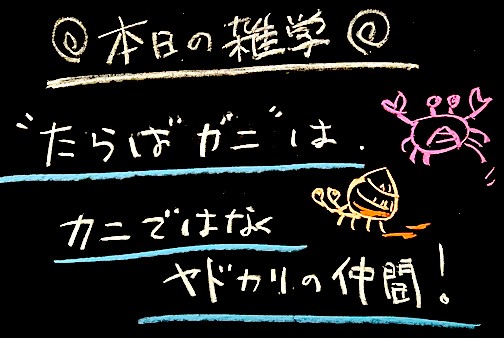 ◎本日の雑学◎
"たらばガニ"は、
カニではなく
ヤドカリの仲間!